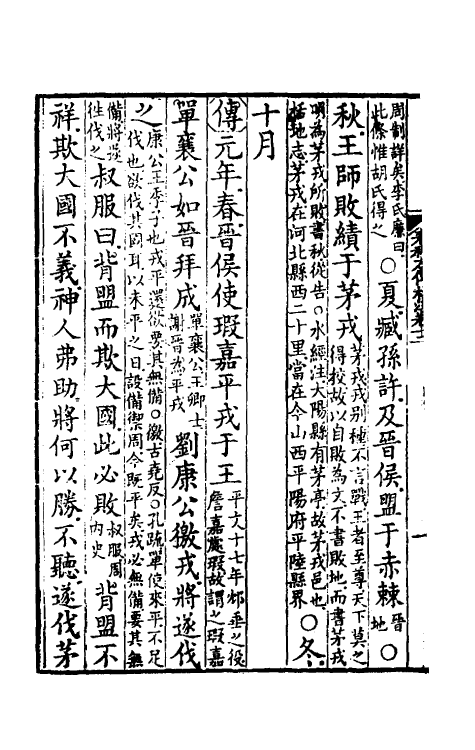 周制詳矣李氏廉曰
此條惟胡氏得之
○夏臧孫許及晉侯盟于赤棘
晉
地
○
秋王師敗績于茅戎
茅戎戎别種不言戰王者至尊天下莫之
得校故以自敗為文不書敗地而書茅戎
明為茅戎所敗書秋從告○水經注大陽縣有茅亭故茅戎邑也
括地志茅戎在河北縣西二十里當在今山西平陽府平陸縣界
○冬
十月
傳元年春晉侯使瑕嘉平戎于王
平文十七年邥垂之役
詹嘉處瑕故謂之瑕嘉
單襄公如晉拜成
單襄公王卿士
謝晉為平戎
劉康公徼戎將遂伐
之
康公王季子也戎平還欲要其無備○徼古堯反○孔疏單使來平不足
伐也欲伐其國耳以未平之日設備禦周今既平矣戎必無備要其無
備將遂
往伐之
叔服曰背盟而欺大國此必敗
叔服周
内史
背盟不
祥欺大國不義神人弗助將何以勝不聽遂伐茅